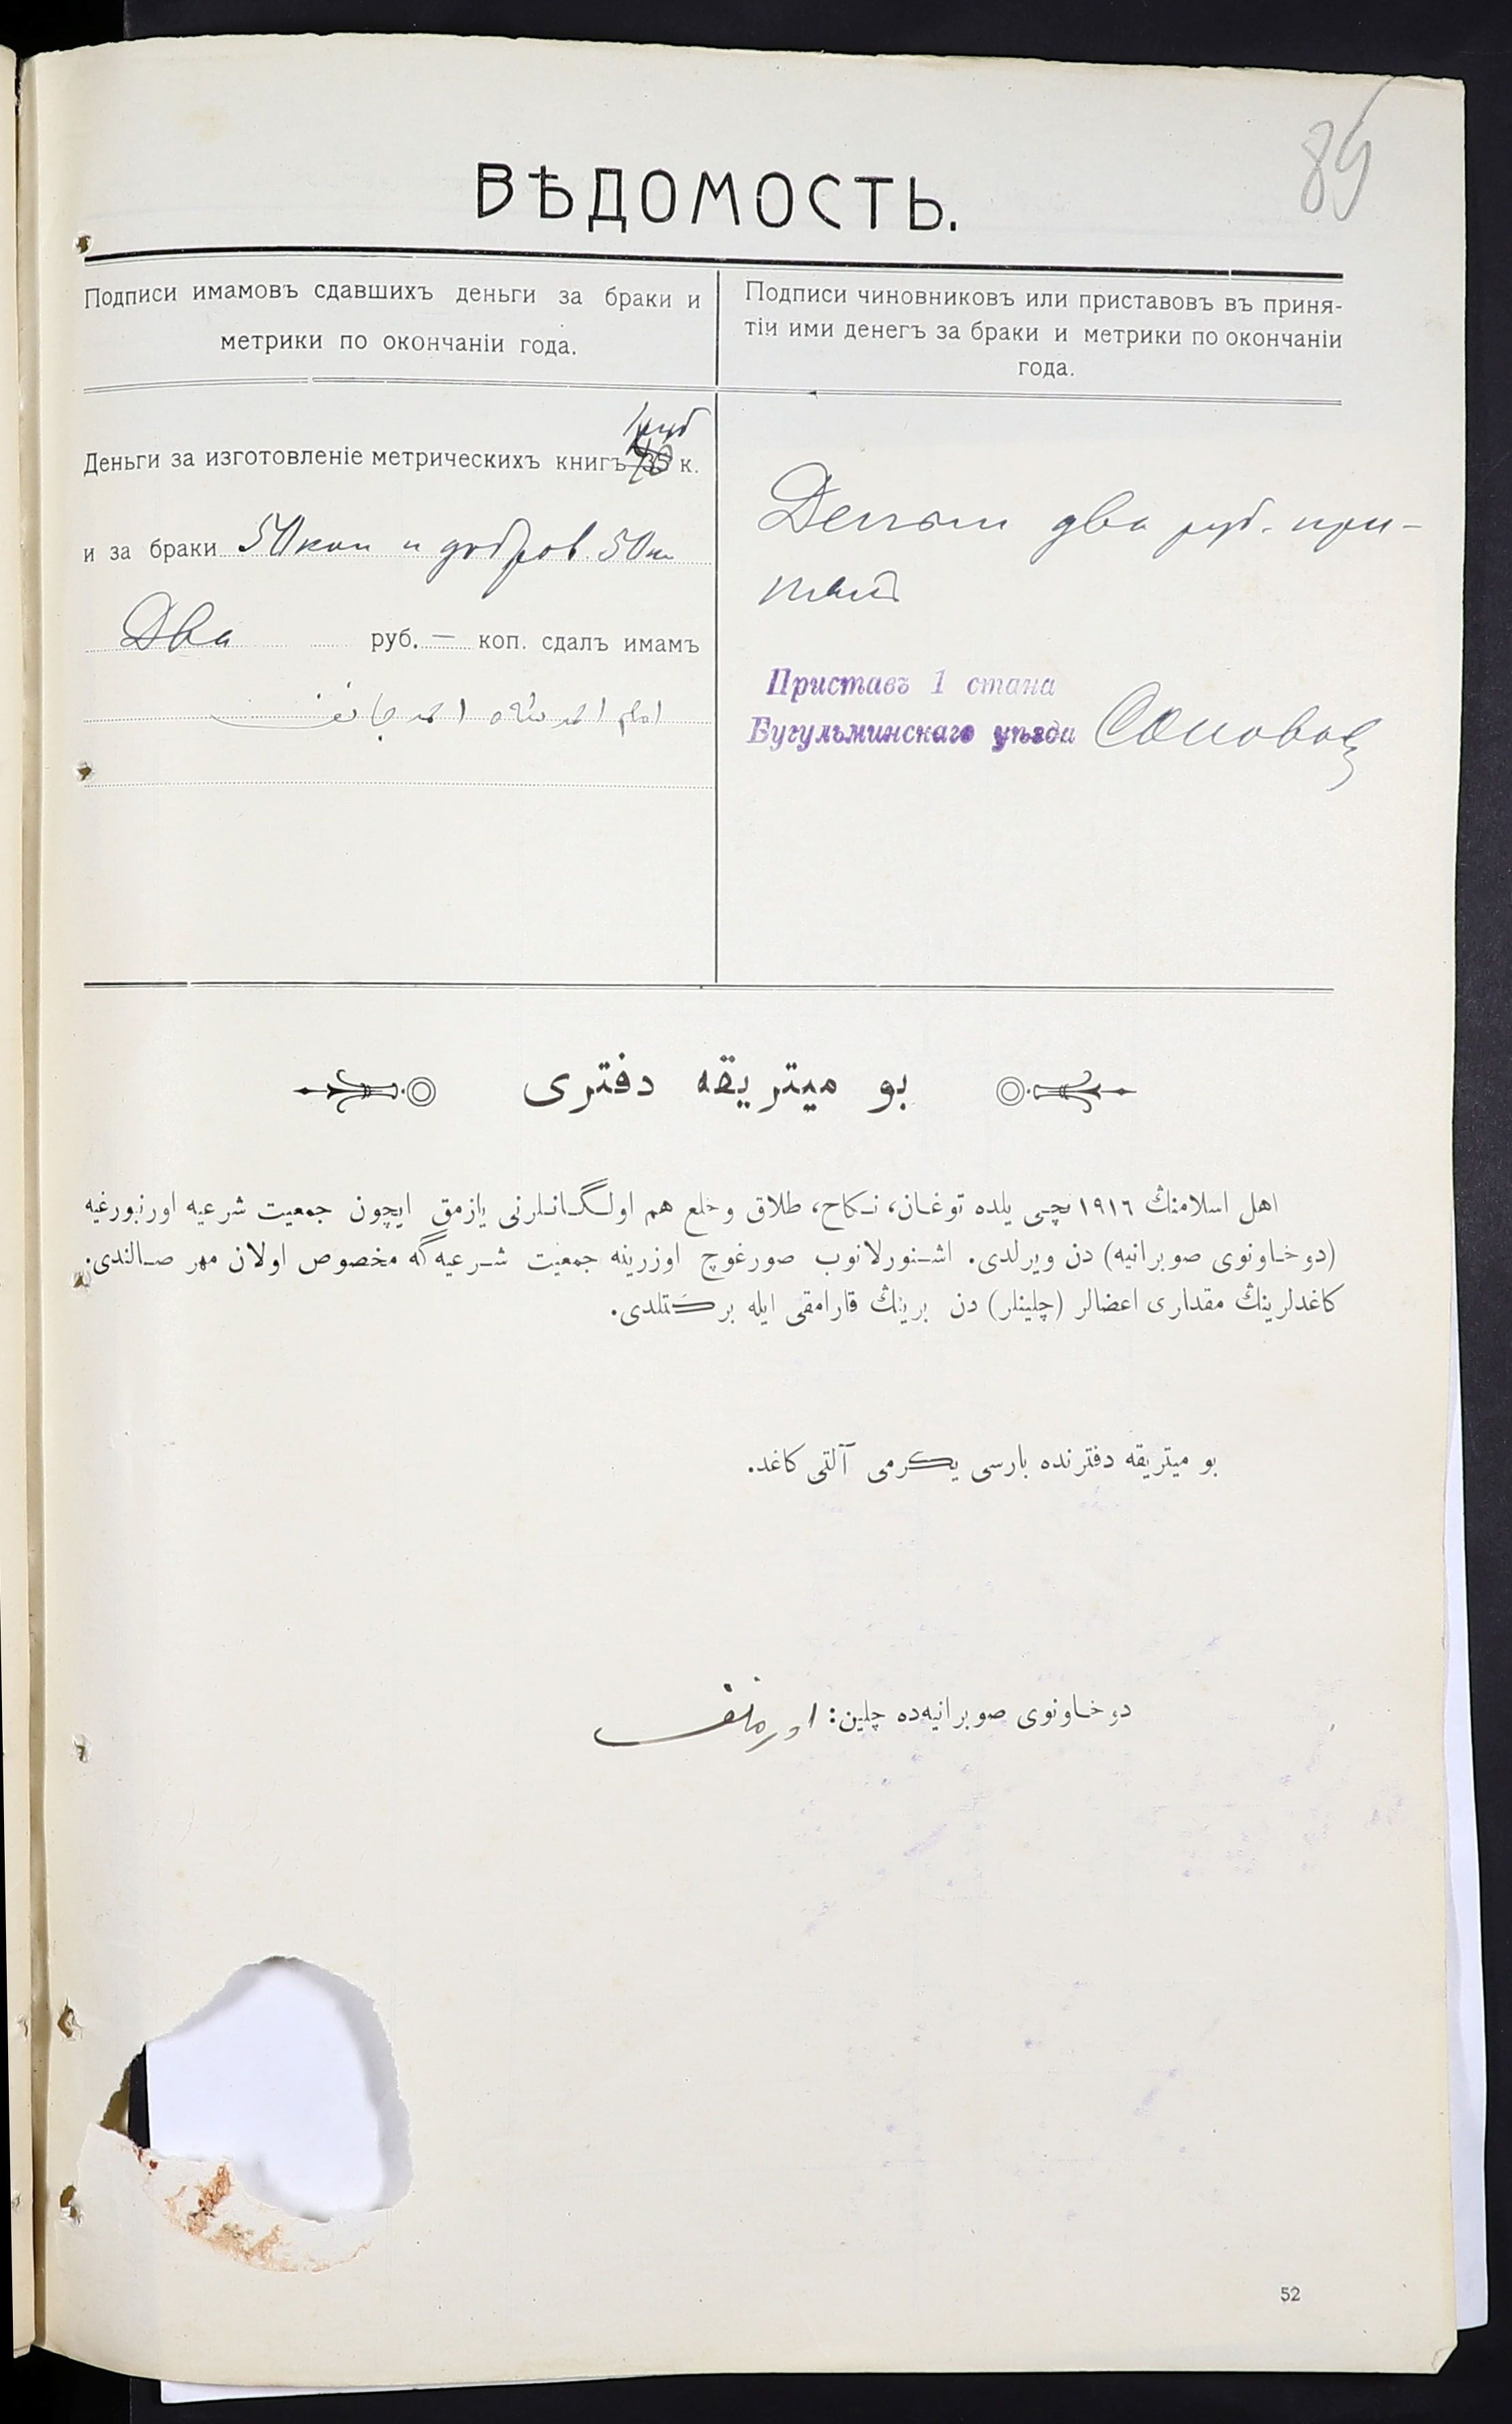 85
ВѢДОМОСТЬ.
Подписи имамовъ сдавшихъ деньги за браки и
метрики по окончаніи года.
Подписи чиновниковъ или приставовъ въ приня-
тіи ими денегъ за браки и метрики по окончаніи
года.
1 руб
Деньги за изготовленіе метрическихъ книгъ 35 к.
и за браки 50 коп и добров. 50 к
Два руб. — коп. сдалъ имамъ
امام احمدشاه احمدجانف
Деньги два руб. при-
нялъ
Приставъ 1 стана
Бугульминскаго уѣзда
بو ميتريقه دفترى
اهل اسلامنڭ ١٩١٦ نچى يلده توغان، نكاح، طلاق وخلع هم اولگانلرنى يازمق ايچون جمعيت شرعيه اورنبورغيه
(دوخاونوى صوبرانيه) دن ويرلدى. اشنورلانوب صورغوچ اوزرينه جمعيت شرعيه‌گه مخصوص اولان مهر صالندى.
كاغدلرينڭ مقدارى اعضالر (چلينلر) دن برينڭ قارامقى ايله بركتلدى.
بو ميتريقه دفترنده بارسى يكرمى آلتى كاغد.
دوخاونوى صوبرانيه‌ده چلين:
52